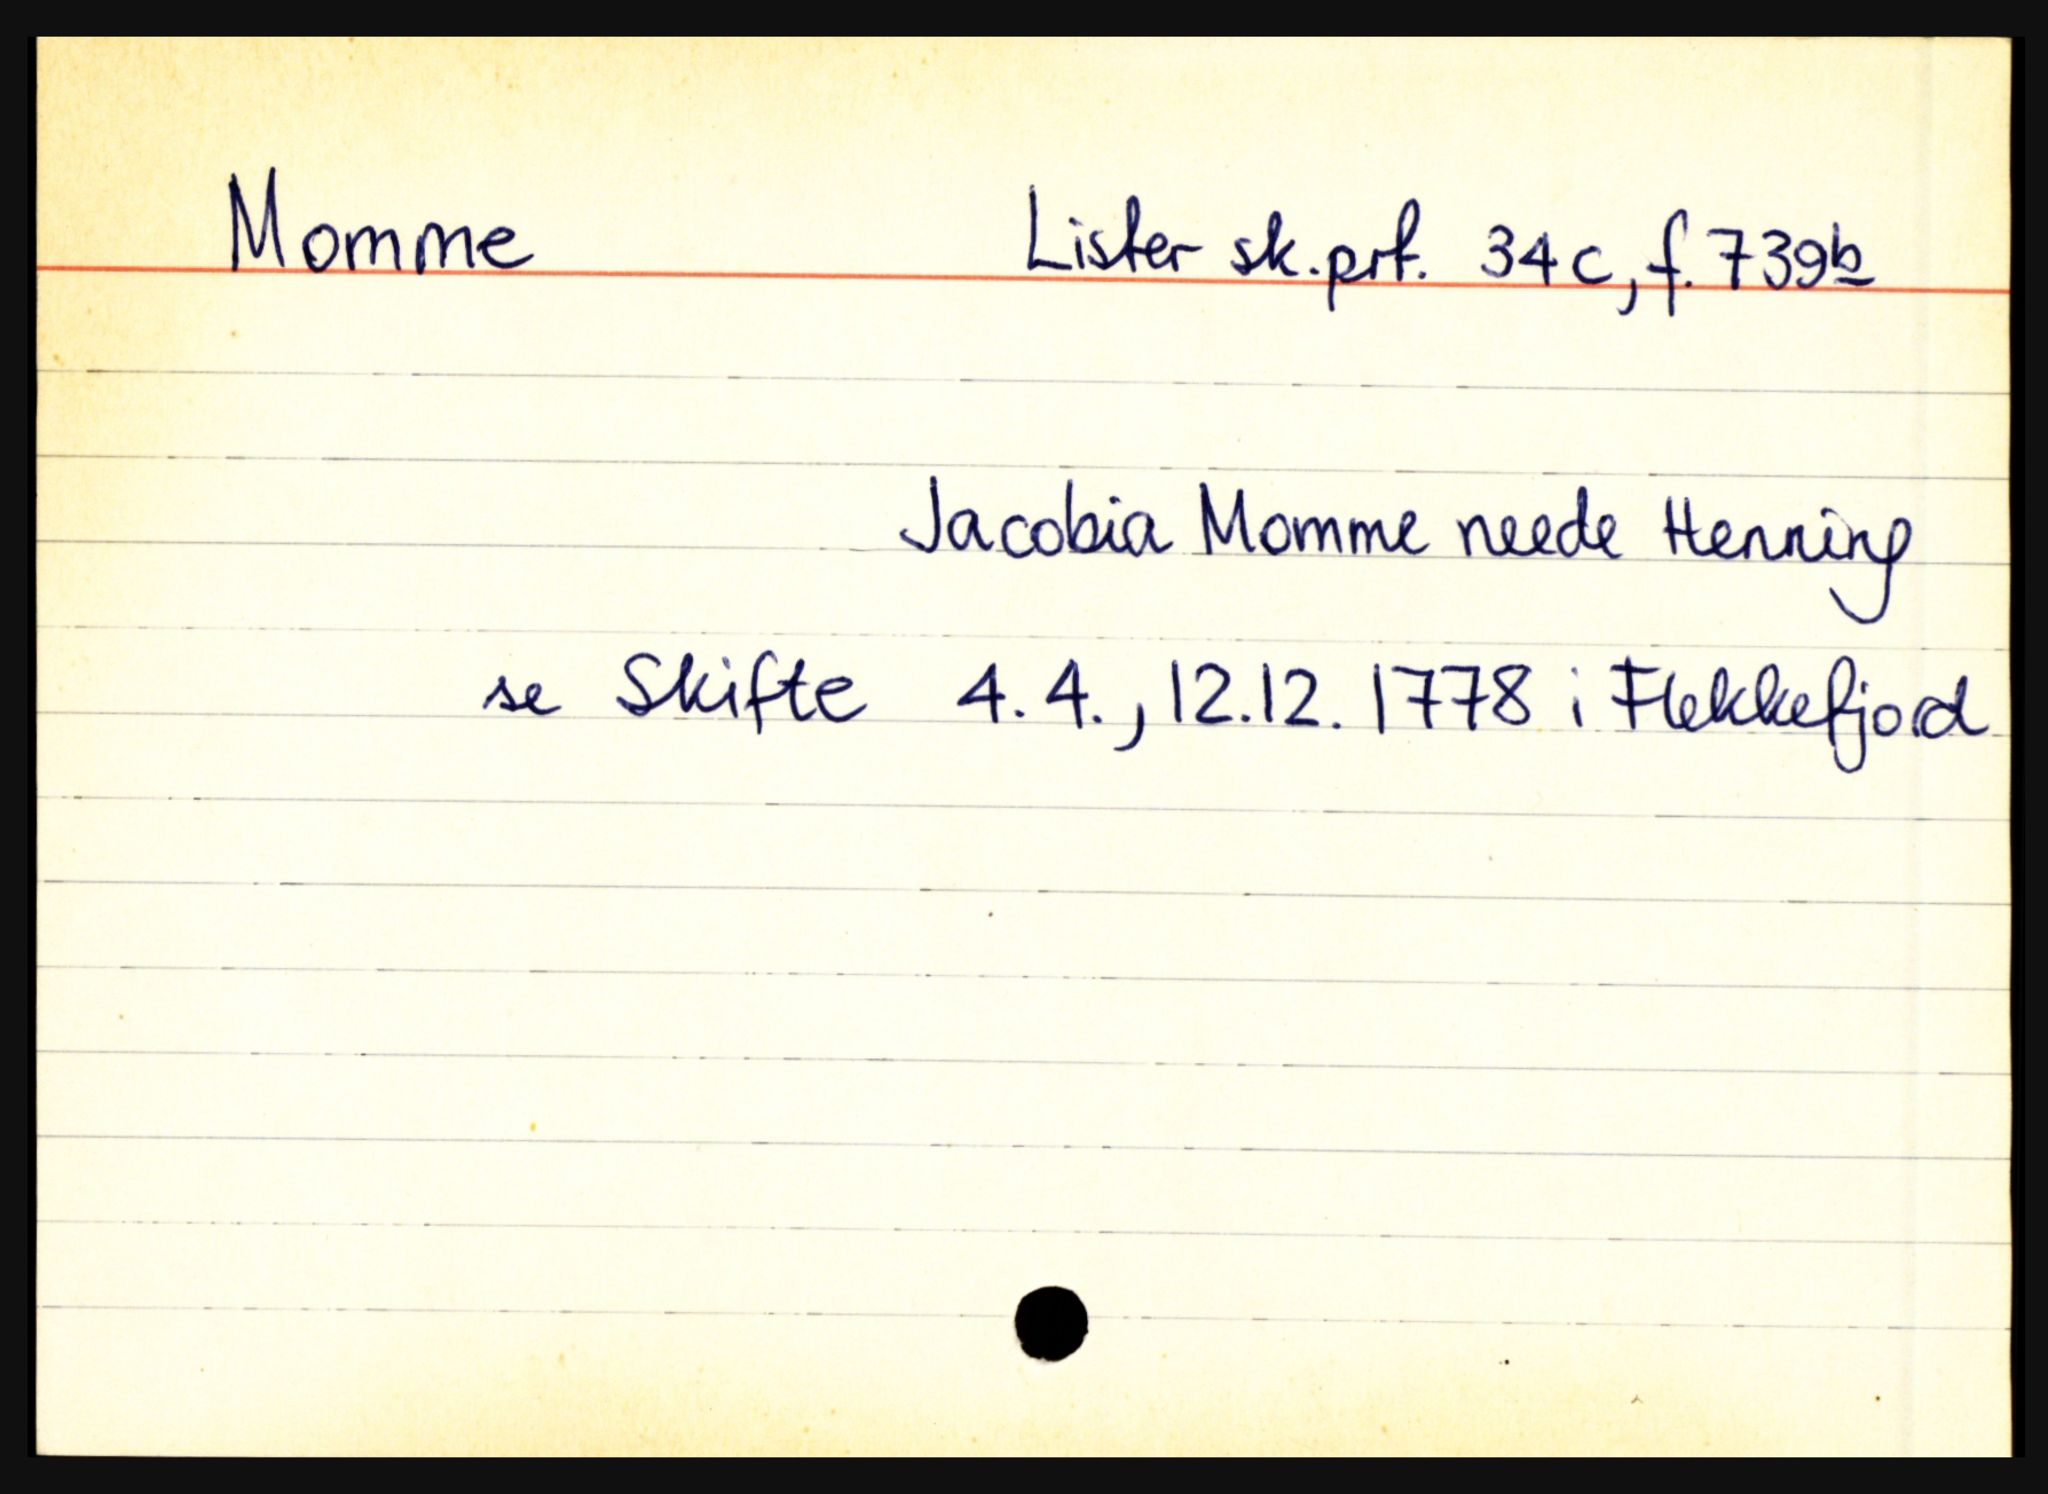 Momme Lister sk.prt. 34c, f. 739b
Jacobia Momme neede Henning
se Skifte 4.4., 12.12. 1778 i Flekkefjord